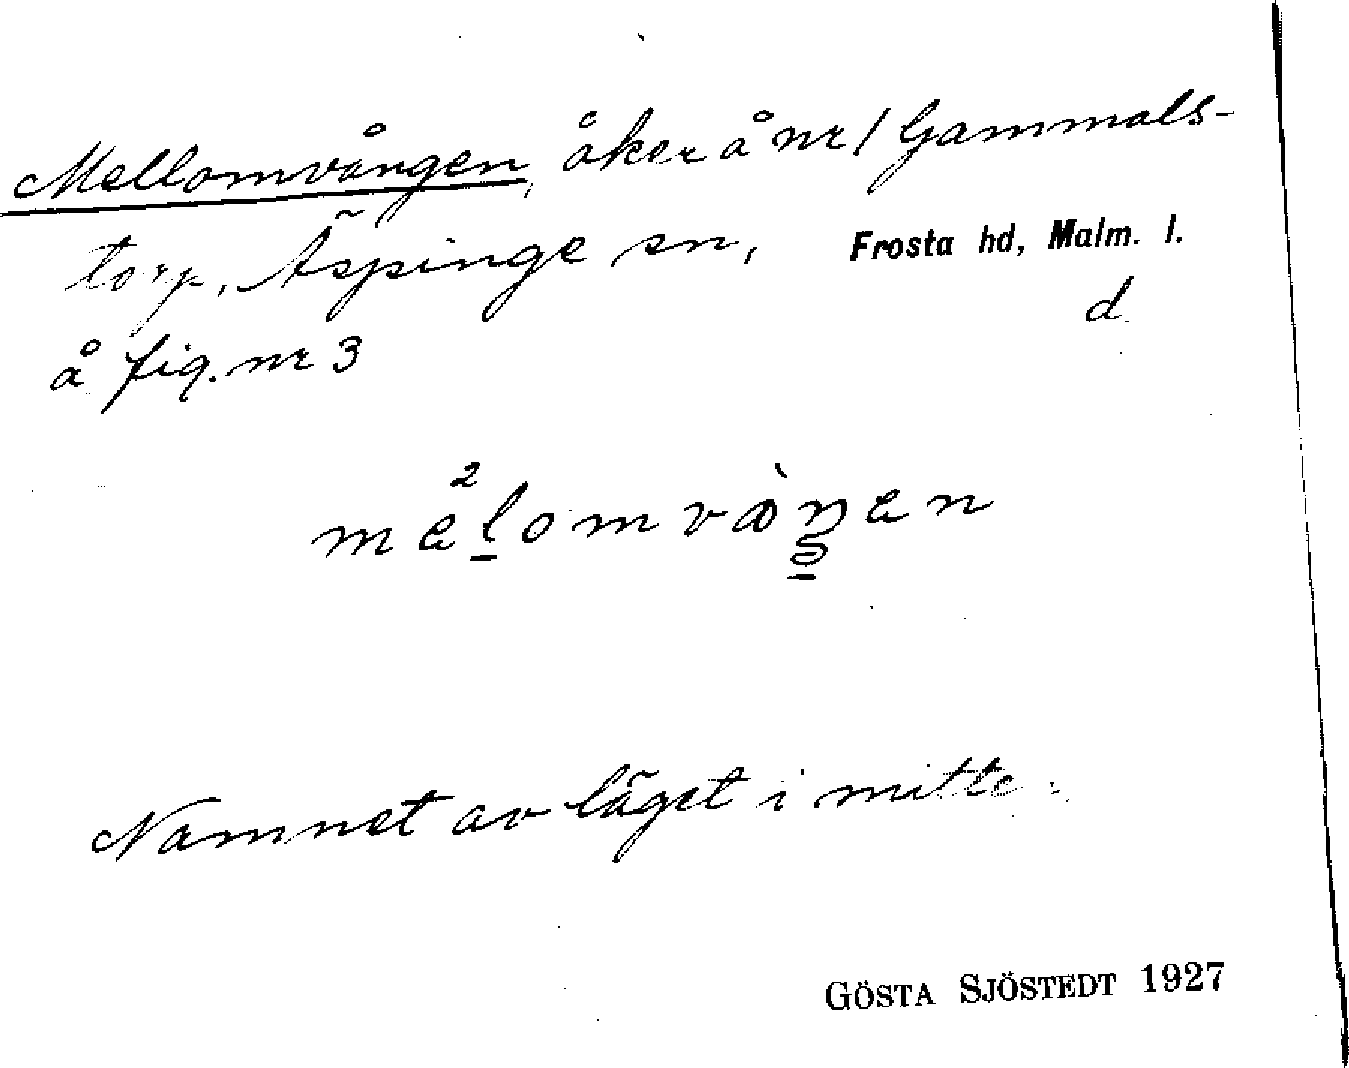 Mellomvången, åker å nr 1 Gammals-
torp, Äspinge sn, Frosta hd, Malm. l.
d
å fig. nr 3
Namnet av läget i mitte.
GÖSTA SJÖSTEDT 1927